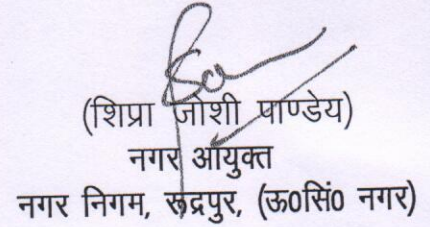 (शिप्रा जोशी पाण्डेय)
नगर आयुक्त
नगर निगम, रूद्रपुर, (ऊ0सिं0 नगर)